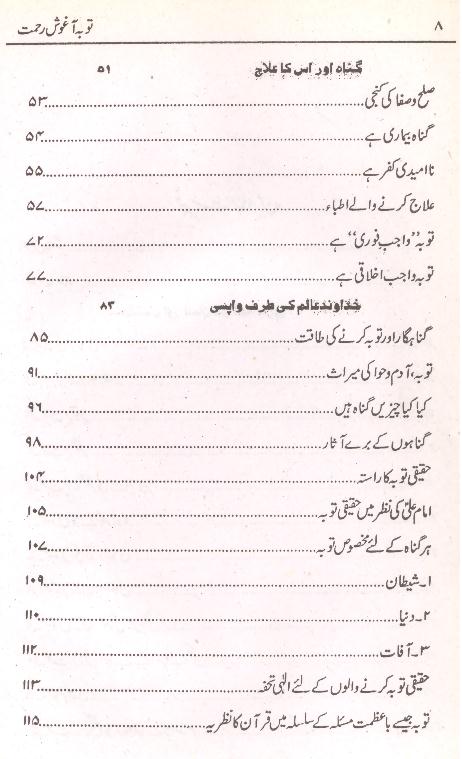 ۸ توبہ آغوش رحمت
گناہ اور اس کا علاج ۵۱
صلح و صفا کی کنجی ۵۳
گناہ بیماری ہے ۵۴
ناامیدی کفر ہے ۵۵
علاج کرنے والے اطباء ۵۷
توبہ ’’واجب فوری‘‘ ہے ۷۲
توبہ واجب اخلاقی ہے ۷۷
خداوندعالم کی طرف واپسی ۸۳
گناہگار اور توبہ کرنے کی طاقت ۸۵
توبہ، آدم و حوا کی میراث ۹۱
کیا کیا چیزیں گناہ ہیں ۹۶
گناہوں کے برے آثار ۹۸
حقیقی توبہ کا راستہ ۱۰۴
امام علیؑ کی نظر میں حقیقی توبہ ۱۰۵
ہر گناہ کے لئے مخصوص توبہ ۱۰۷
۱۔ شیطان ۱۰۹
۲۔ دنیا ۱۱۰
۳۔ آفات ۱۱۲
حقیقی توبہ کرنے والوں کے لئے الٰہی تحفہ ۱۱۳
توبہ جیسے باعظمت مسئلہ کے سلسلہ میں قرآن کا نظریہ ۱۱۵